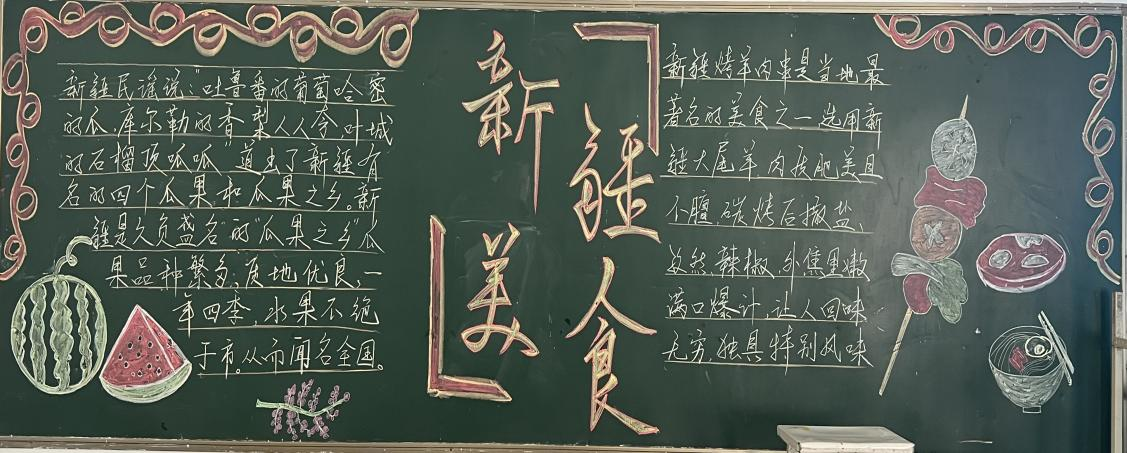 新疆民谣说："吐鲁番的葡萄哈密
的瓜，库尔勒的香梨人人夸，叶城
的石榴顶呱呱"道出了新疆有
名的四个瓜果，和瓜果之乡。新
疆是久负盛名的"瓜果之乡"瓜
果品种繁多，质地优良，一
年四季，水果不绝
于市。从而闻名全国。
新疆
美食
新疆烤羊肉串是当地最
著名的美食之一选用新
疆大尾羊，肉质肥美且
不膻，碳烤后撒盐、
孜然、辣椒，外焦里嫩
满口爆汁，让人回味
无穷，独具特别风味